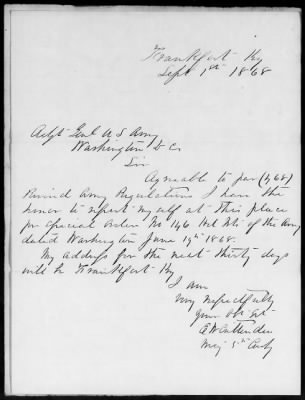 Frankfort Ky
Sept 1st 1868
Adjt Genl U S Army
Washington D C
Sir
Agreable to par (468)
Revised Army Regulations I have the
honor to report myself at this place
per Special Order No 146 Hd Qts of the Army
dated Washington June 19th 1868.
My address for the next thirty days
will be Frankfort Ky
I am
very respectfully
your obt Svt
Maj 5th Cavly